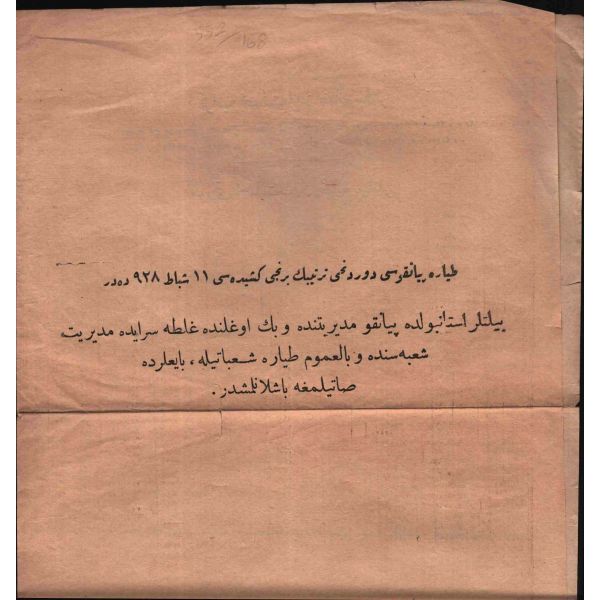 ٥٥٢/١٦٨
طياره پيانقوسى دوردنجى ترتيبك برنجى كشيده سى ١١ شباط ٩٢٨ ده در
بيلتلر استانبولده پيانقو مديريتنده و بك اوغلنده غلطه سرايده مديريت
شعبه سنده و بالعموم طياره شعباتيله ، بايعلرده
صاتيلمغه باشلانلمشدر .